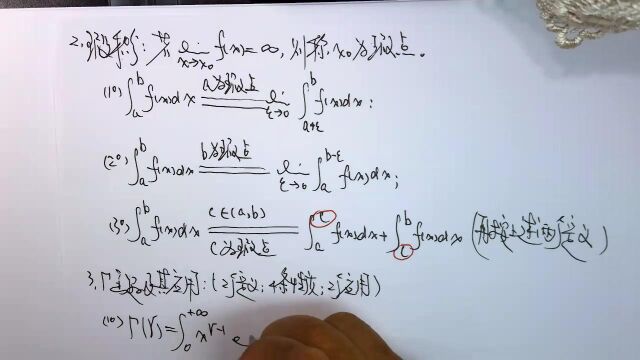 2. 瑕积分: 若 lim x→x₀ f(x)=∞, 则称 x₀ 为瑕点.
(1°) ∫_a^b f(x)dx a为瑕点 = lim ε→0 ∫_{a+ε}^b f(x)dx;
(2°) ∫_a^b f(x)dx b为瑕点 = lim ε→0 ∫_a^{b-ε} f(x)dx;
(3°) ∫_a^b f(x)dx c∈(a,b) = c为瑕点 ∫_a^c f(x)dx + ∫_c^b f(x)dx (用上述定义)
3. Γ函数及其应用: (2个定义; 4条性质; 2个应用)
(1°) Γ(r)=∫_0^{+∞} x^{r-1} e